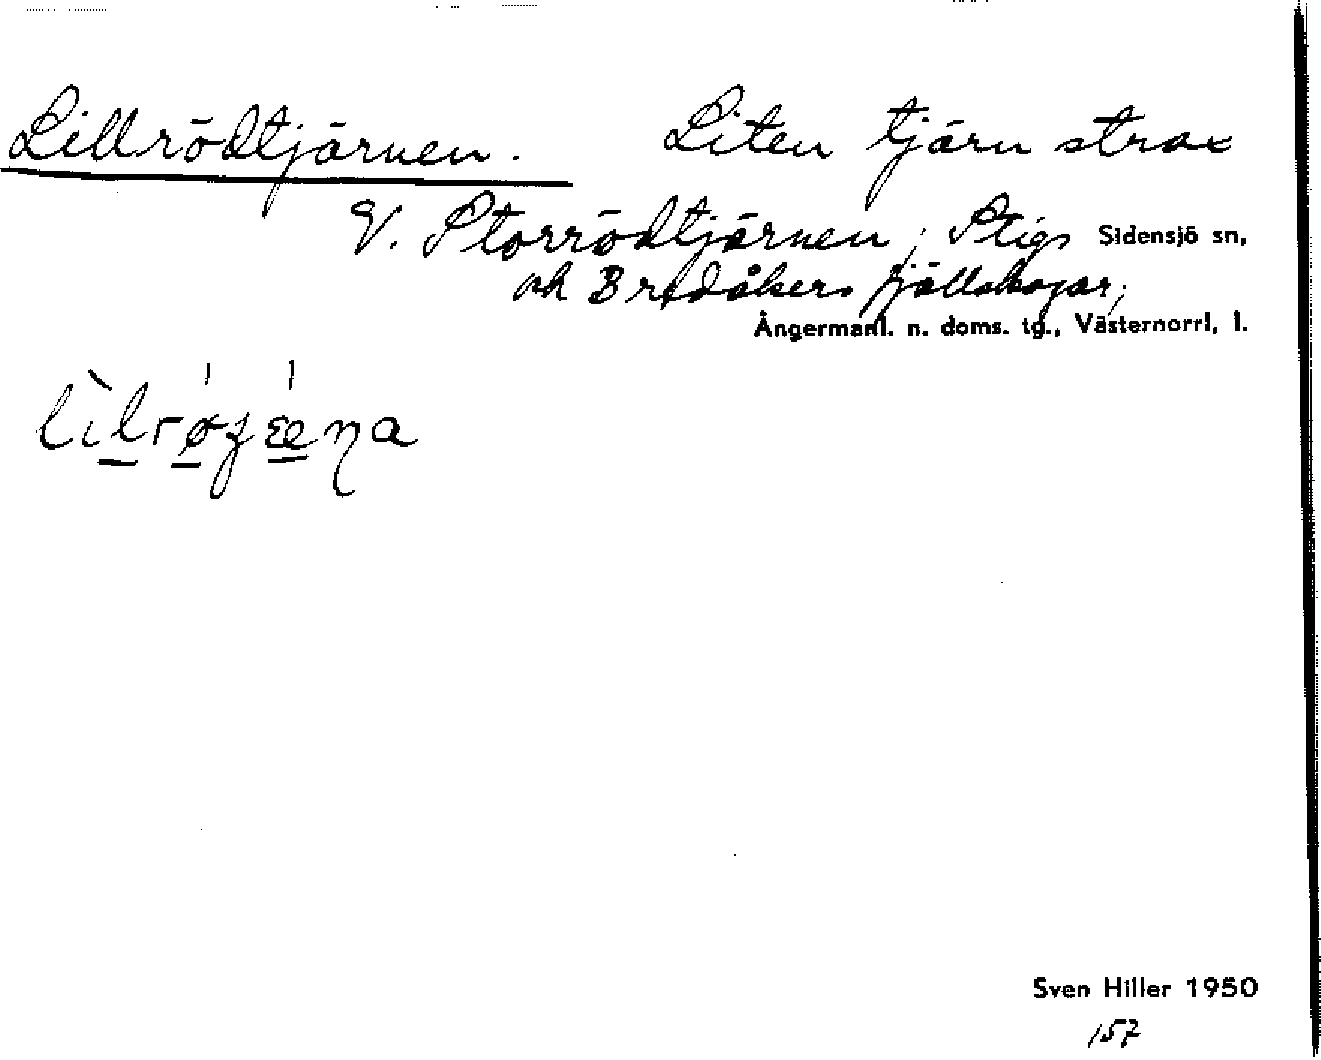 Lillrödtjärnen. Liten tjärn strax
V. Storrödtjärnen; Stigs Sidensjö sn,
och Bredåkers fjällskogar;
Ångermanl. n. doms. tg., Västernorrl. l.
Sven Hiller 1950
157